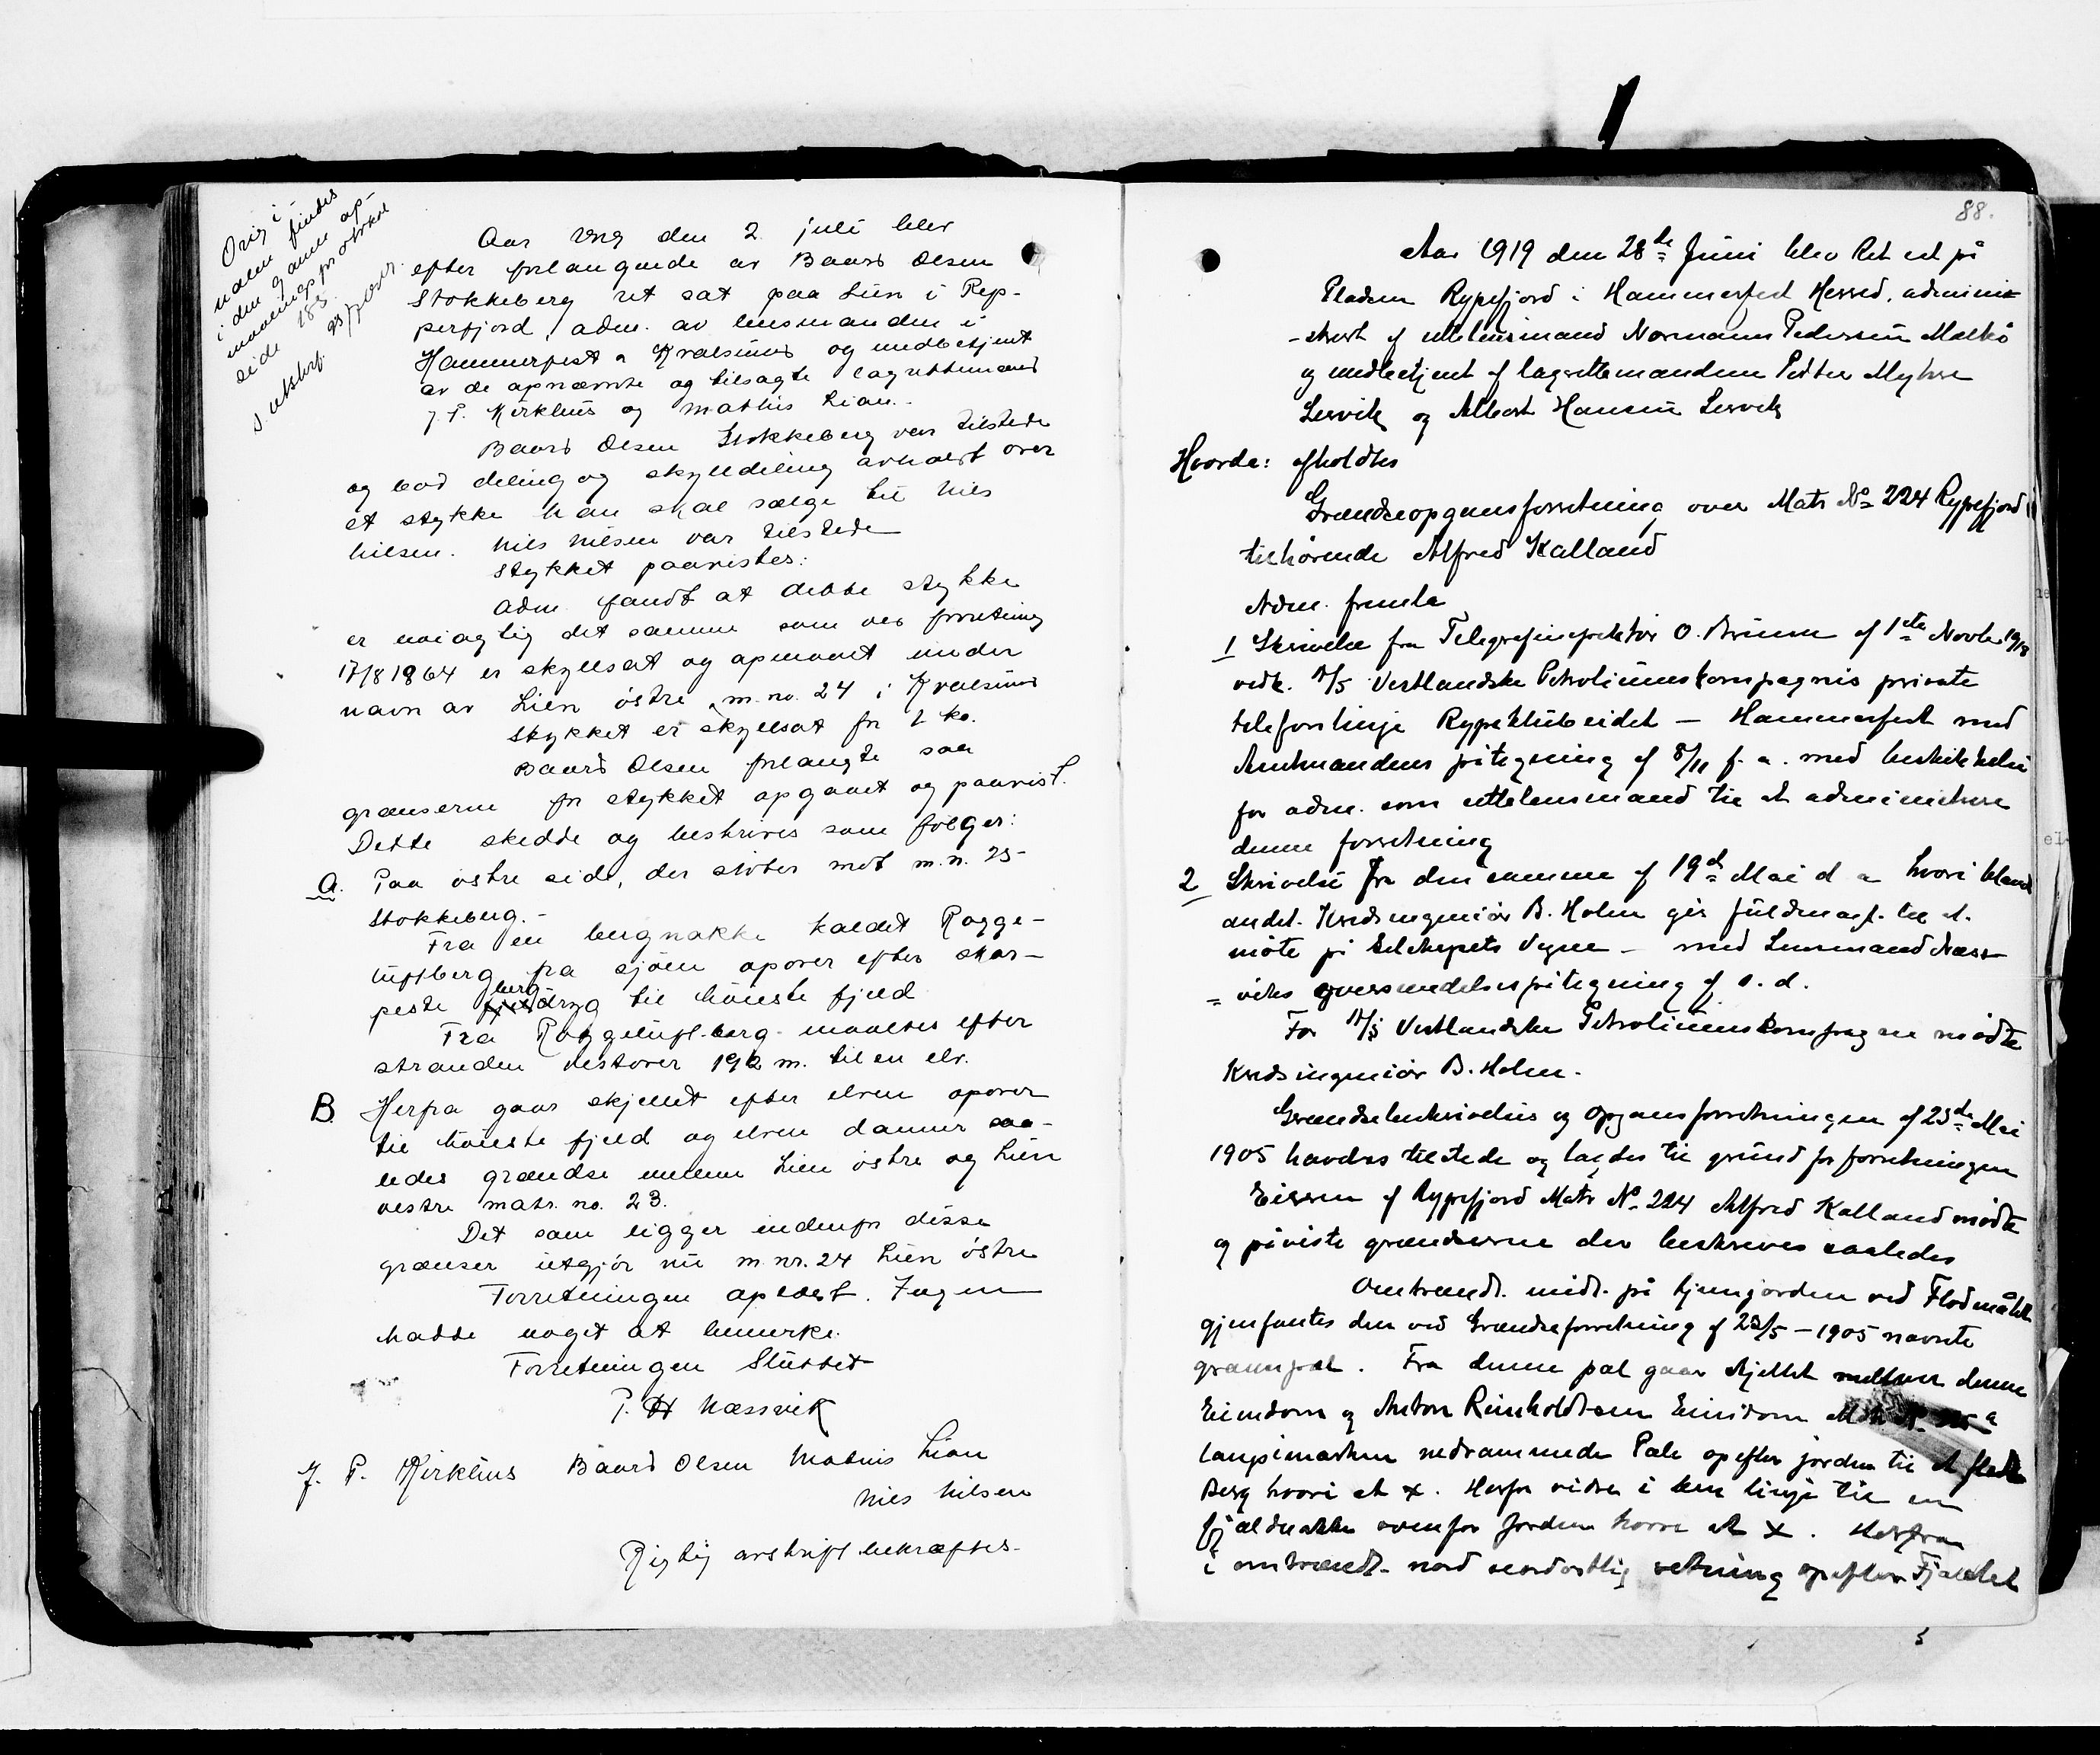 Orig i-
nalen findes
i den gamle op-
maalingsprotokol
side 183.
s. utskrf.
Aar 1919 den 2 juli blev
efter forlangende av Baard Olsen
Stokkeberg ret sat paa Lien i Rep-
perfjord, adm. av lensmanden i
Hammerfest & Kvalsund og medbetjent
av de opnævnte og tilsagte lagrettemænd
J. P. Kirklius og Mathis Lian.-
Baard Olsen Stokkeberg var tilstede
og bad deling og skylddeling avholdt over
et stykke han skal sælge til Nils
Nilsen. Nils Nilsen var tilstede
Stykket paavistes:
Adm. fandt at dette stykke
er nøiagtig det samme som ved forretning
17/8 1864 er skyldsat og opmaalt under
navn av Lien østre, m. no. 24 i Kvalsund
Stykket er skyldsat for 2 ko.
Baard Olsen forlangte saa
grænserne for stykket opgaaet og paavist.
Dette skedde og beskrives som følger:
A. Paa østre side, der støter mot m. n. 25-
Stokkeberg.-
Fra en bergnakke kaldet Rogge-
luftberg fra sjøen opover efter skar-
peste bergdryg til høieste fjeld
Fra Roggeluft-berg maaltes efter
stranden vestover 192 m. til en elv.
B. Herfra gaar skjellet efter elven opover
til høieste fjeld og elven danner saa-
ledes grændse mellem Lien østre og Lien
vestre matr. no. 23.
Det som ligger indenfor disse
grænser utgjør nu m. nr. 24 Lien østre
Forretningen oplæst. Ingen
hadde noget at bemerke.
Forretningen Sluttet
P. H Næssvik
J. P. Kirklius Baard Olsen Mathis Lian
Nils Nilsen
Rigtig avskrift bekræftes.
88.
Aar 1919 den 28de Juni blev Ret sat på
Pladsen Rypefjord i Hammerfest Herred, admini-
-strert af settelensmand Normann Pedersen Melkø
og medbetjent af lagrettemændene Petter Myhre
Leirvik og Albert Hansen Leirvik
Hvorda: afholdtes
Grændseopgangsforretning over Matr No 224 Rypefjord
tilhørende Alfred Kalland
Adm. fremla
1 Skrivelse fra Telegrafinspektør O. Bruun af 1ste Novbr 1918
vedk. A/S Vestlandske Petroliumskompagnis private
telefonlinje Rypeklubeidet - Hammerfest med
Amtmandens påtegning af 8/11 f. a. med beskikkelse
for adm. som settelensmand til at administrere
denne forretning
2 Skrivelse fra den samme af 19de Mai d a hvori bland
andet Kredsingeniør B. Holm gir fuldmagt til at
møte på Selskapets Vegne - med Lensmand Næss-
= viks oversendelsespåtegning af s. d.
For A/S Vestlandske Petroliumskompagne mødte
Kredsingeniør B. Holm.
Grændsebeskrivelse og Opgangsforretningen af 23de Mai
1905 havdes tilstede og lagdes til grund for forretningen
Eieren af Rypefjord Matr No 224 Alfred Kalland mødte
og påviste grændserne der beskreves saaledes
Omtrendt midt på hjemjorden ved Flodmålet
gjenfantes den ved Grændseforretning af 23/5 - 1905 nævnte
grænspæl. Fra denne pæl gaar skjellet mellem denne
Eiendom og Anton Reinholdtsen Eiendom
langs i marken nedrammede Pæle opefter jorden til et fladt
Berg hvori et x. Herfra videre i lem linje til en
fjældnakke ovenfor Jorden hvori et x. Herfra
i omtrendt nord nordostlig retning opefter Fjældet